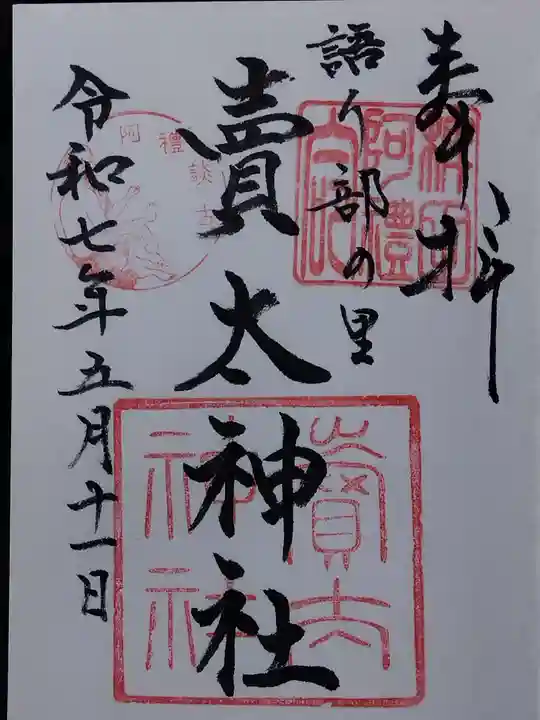 奉拝
語り部の里
賣太神社
令和七年五月十一日
稗田
阿禮
阿禮談古
賣太
神社